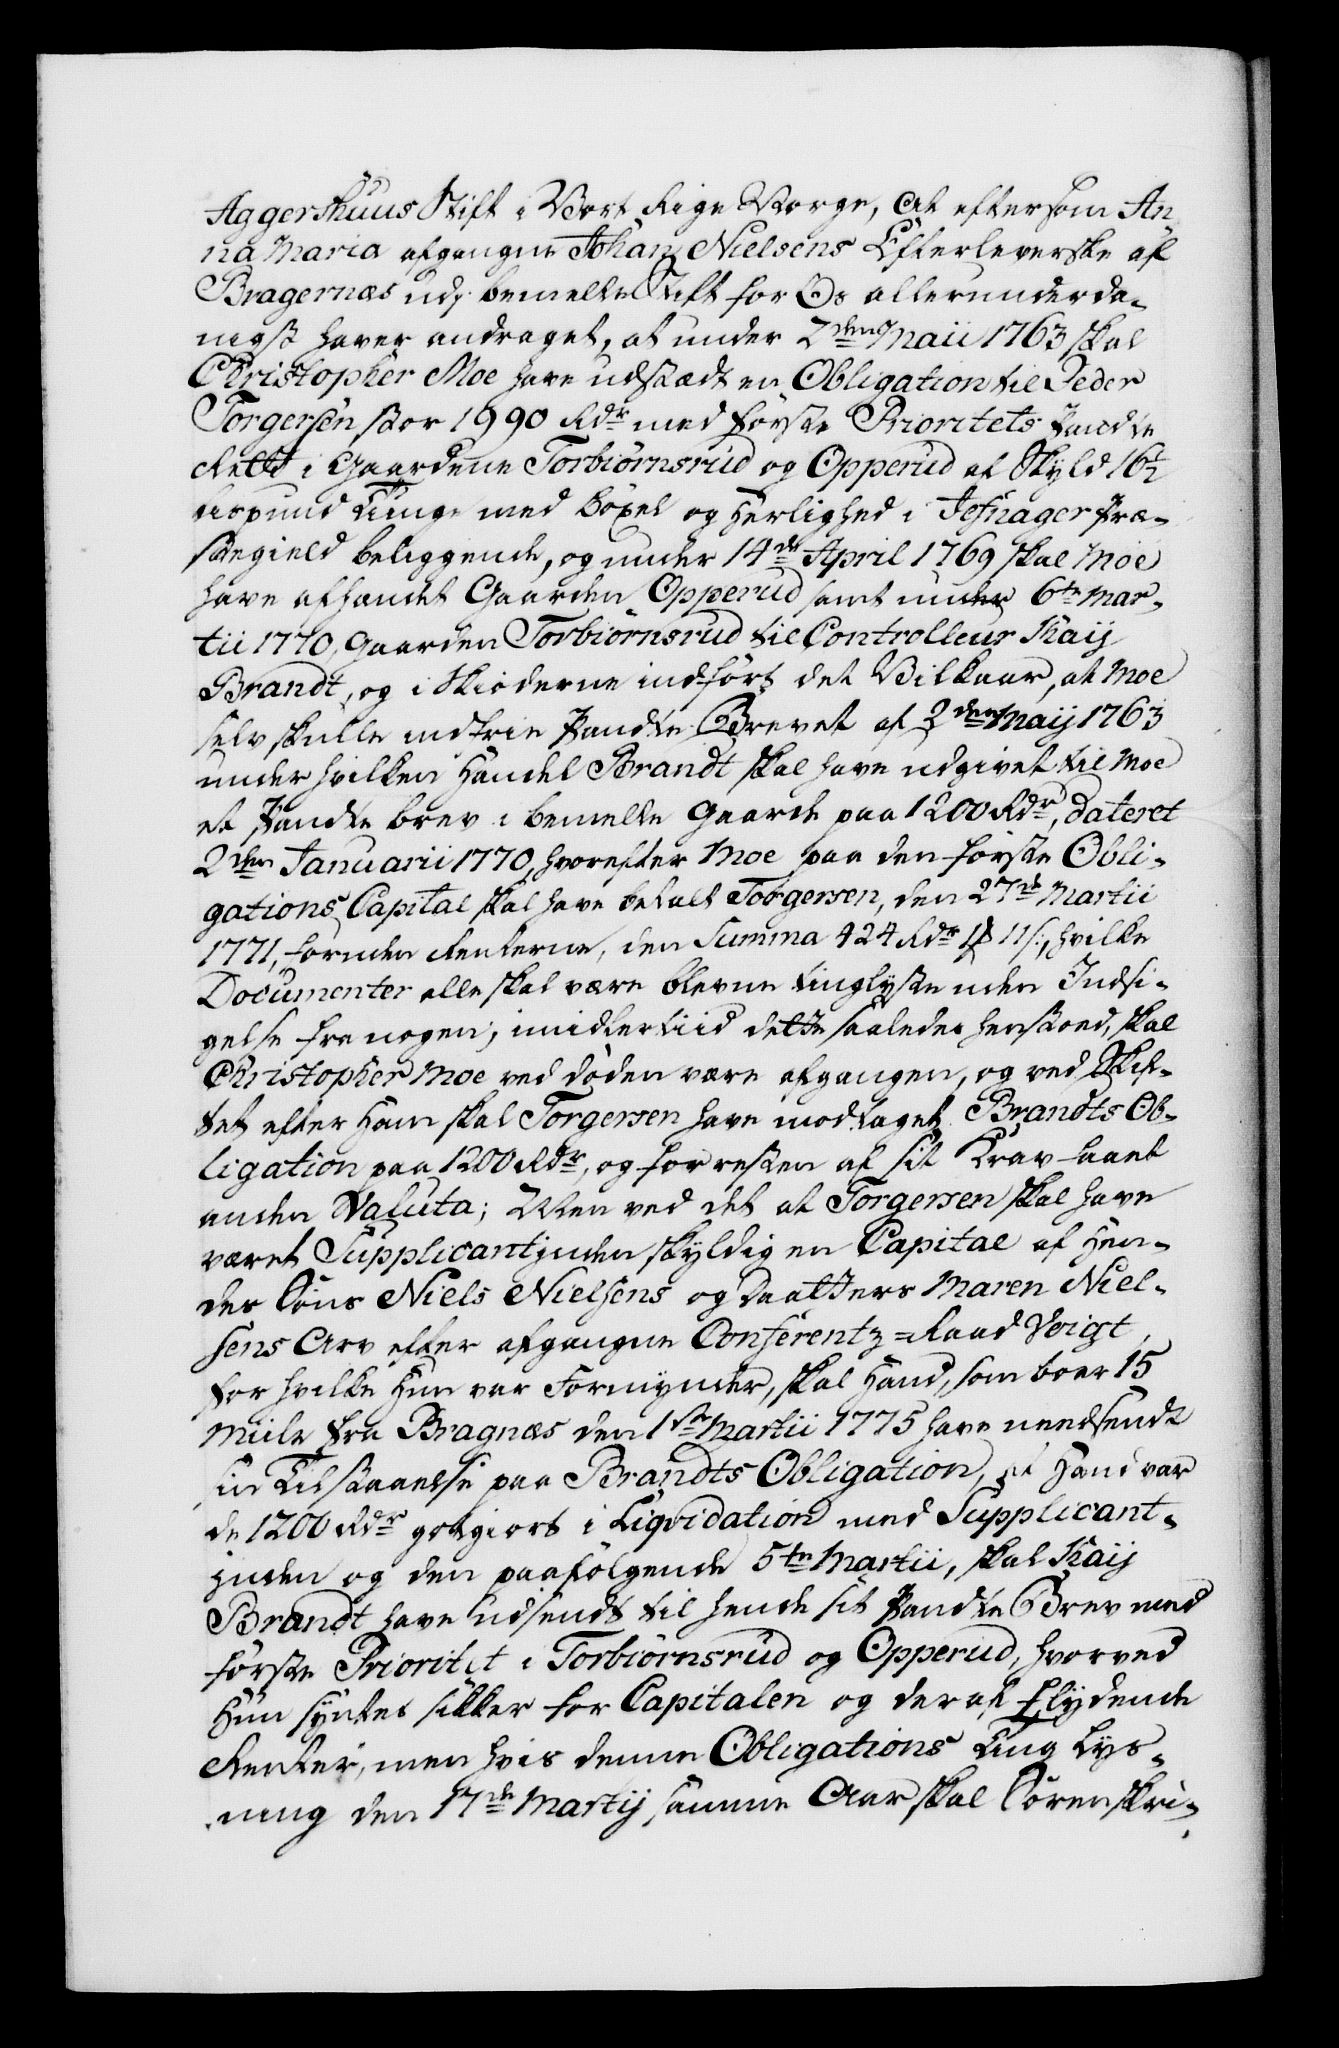 Aggershuus Stift i Vort Rige Norge, At eftersom An
na Maria afgangne Johan Nielsens Efterleverske af
Bragernæs udj bemelte Stift for Os allerunderda-
nigst haver andraget, at under 2den Maii 1763 skal
Christopher Moe have udstædt en Obligation til Peder
Torgersen stor 1990 Rdr med første Prioritets Pandte
Rett i Gaardene Torbiørnsrud og Opperud af Skyld 16½
Lispund Tunge med böxel og Herlighed i Jefnager Præ-
stegield beliggende, og under 14de April 1769 skal Moe
have afhandet Gaarden Opperud samt under 6te Mar-
tii 1770, Gaarden Torbiörnsrud til Controlleur Kaij
Brandt, og i Skiøderne indført det Vilkaar, at Moe
selv skulle indfrie Pandte Brevet af 2den Maij 1763
under hvilken Handel Brandt skal have udgivet til Moe
et Pandte brev i bemelte Gaarde paa 1200 Rdr, dateret
2den Januarii 1770, hvorefter Moe paa den første Obli-
gations Capital skal have betalt Torgersen, den 27de Martii
1771, foruden Renterne, den Summa 424 Rdr 1 11 s:, hvilke
Documenter alle skal være blevne tinglyste uden Indsi-
gelse fra nogen; imidlertiid dette saaledes henstoed, skal
Christopher Moe ved døden være afgangen, og ved Skif-
tet efter Ham skal Torgersen have modtaget Brandts Ob-
ligation paa 1200 Rdr, og for resten af sit Krav faaet
anden Valuta; Men ved det at Torgersen skal have
været Supplicantinden skyldig en Capital af Hen-
des Søns Niels Nielsens og Daatters Maren Niel-
sens Arv efter afgangne Conferentz=Raad Voigt,
for hvilke Hun var Formynder, skal Hand, som boer 15
Miile fra Bragnæs den 1ste Martii 1775 have needsendt
sin Tilstaaelse paa Brandts Obligation, at Hand var
de 1200 Rdr godgiort i Liqvidation med Supplicant-
inden og den paafølgende 5te Martii, skal Kaij
Brandt have udsendt til hende sit Pandte Brev med
første Prioritet i Torbiørnsrud og Opperud, hvorved
Hun syntes sikker for Capitalen og deraf flydende
Renter, men hvis denne Obligations Ting Lys-
ning den 17de Martij samme Aar skal Sørenskri-